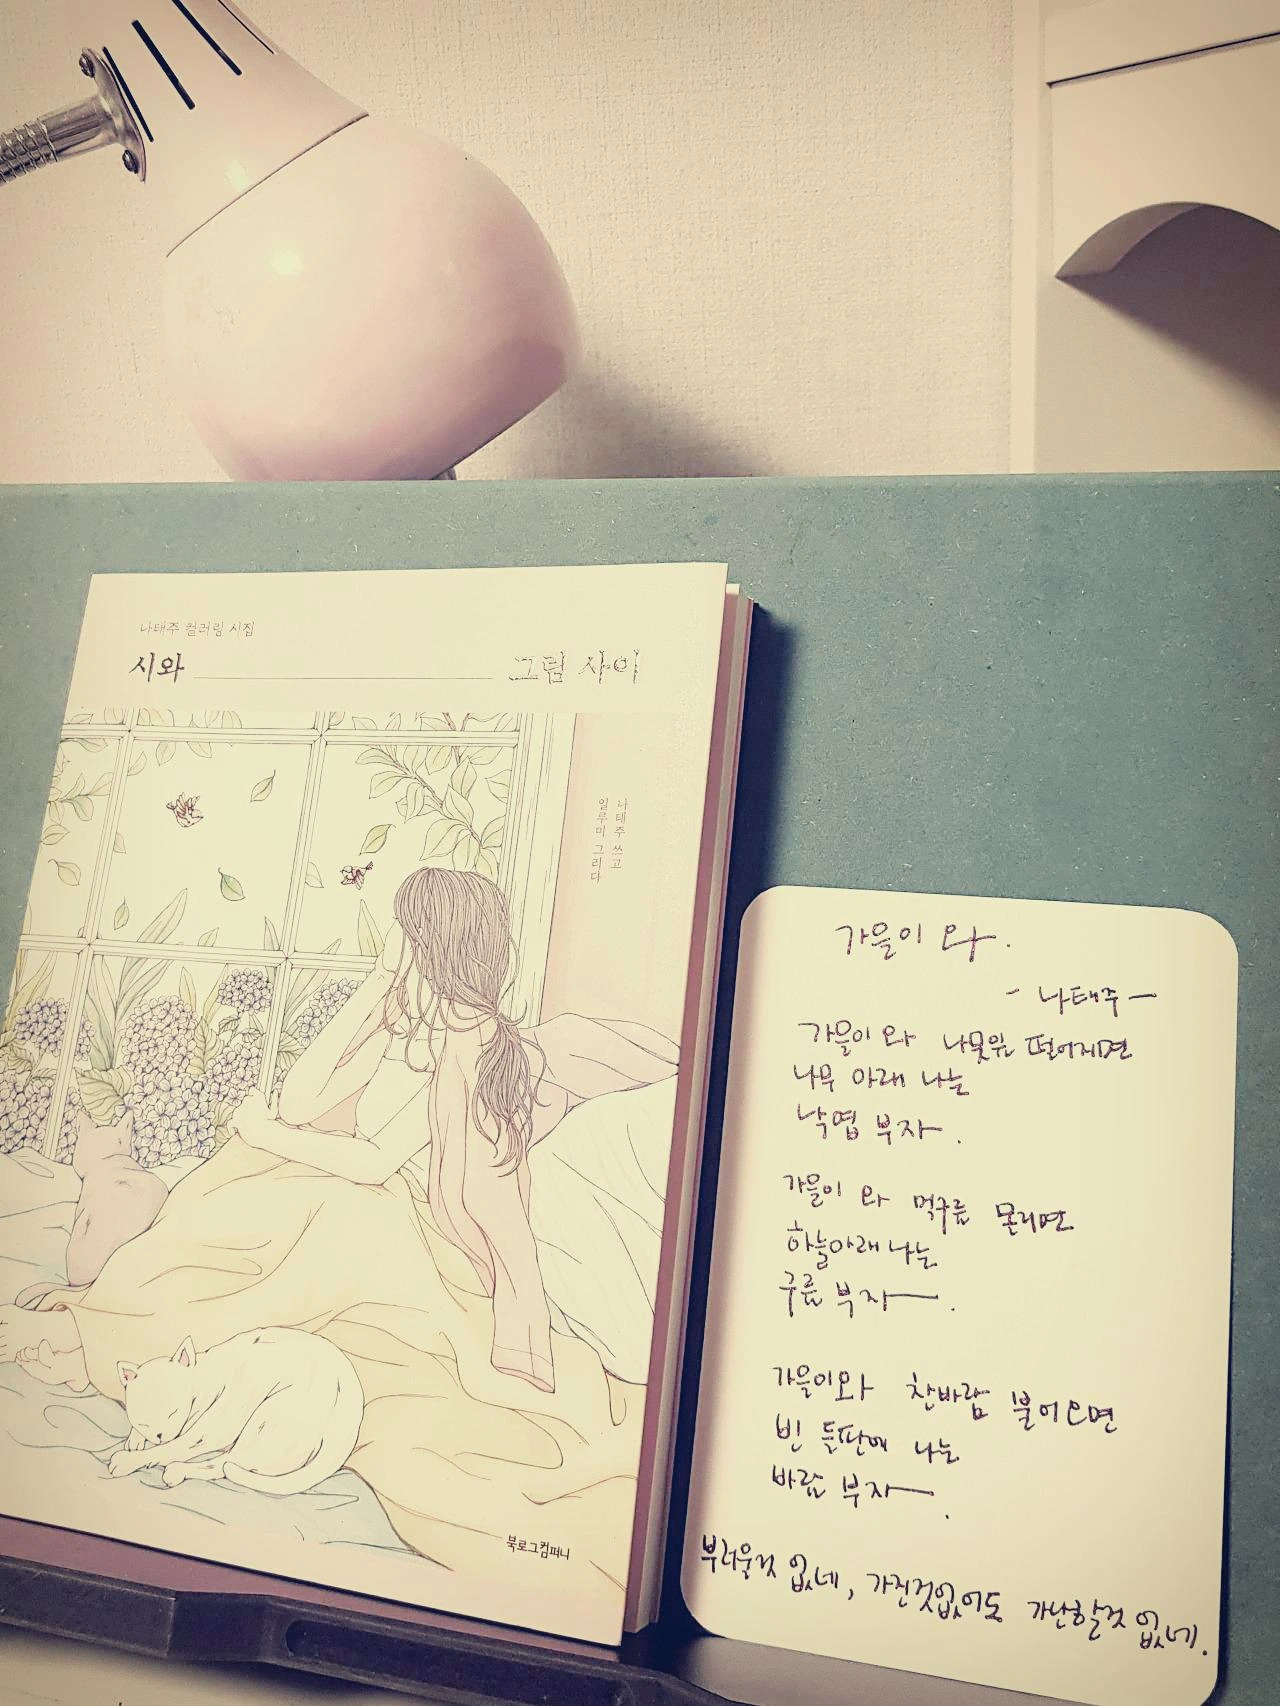 나태주 컬러링 시집
시와 그림 사이
나태주 쓰고
일루미 그리다
북로그컴퍼니
가을이 와.
- 나태주 -
가을이 와 나뭇잎 떨어지면
나무 아래 나는
낙엽 부자.
가을이 와 먹구름 몰리면
하늘아래 나는
구름 부자.
가을이와 찬바람 불어오면
빈 들판에 나는
바람 부자.
부러울것 없네, 가진것없어도 가난할것 없네.